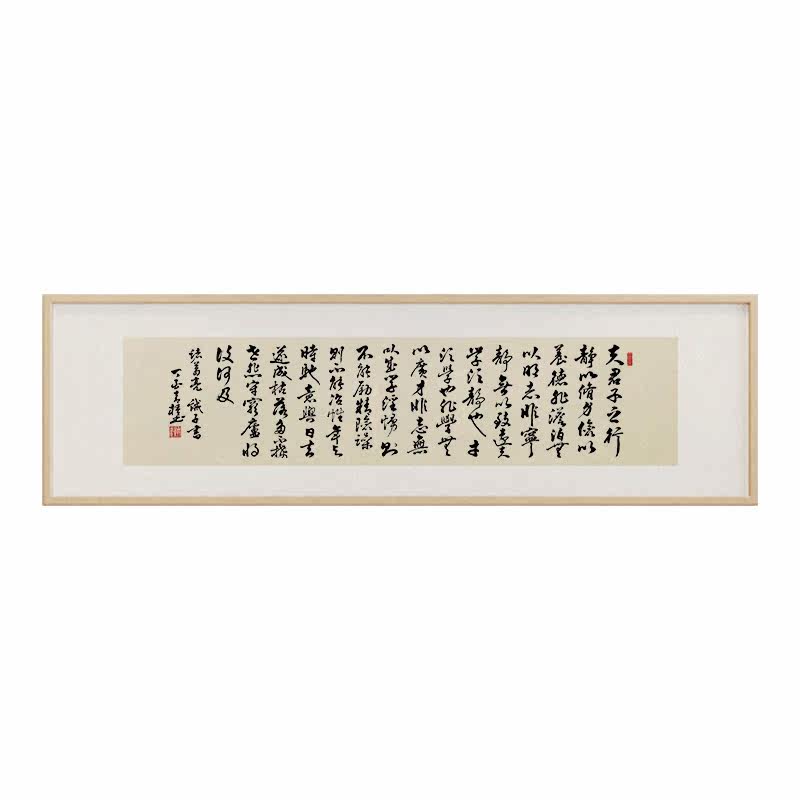 夫君子之行
静以脩身儉以
養德非澹泊無
以明志非寧
靜無以致遠夫
学須静也才
須学也非學無
以廣才非志無
以成学淫慢則
不能勵精險躁
則不能治性年与
時馳意與日去
遂成枯落多不接
世悲守窮廬將
復何及
諸葛亮 誡子書